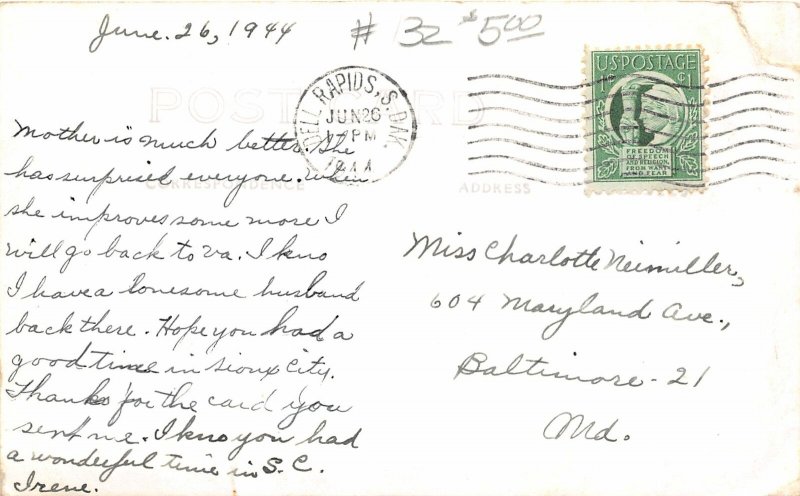 June. 26, 1944
# 32 $5.00
POST CARD
DELL RAPIDS, S. DAK.
JUN 26
PM
1944
U.S. POSTAGE
1¢
FREEDOM
OF SPEECH
AND RELIGION,
FROM WANT
AND FEAR
CORRESPONDENCE
ADDRESS
Mother is much better. She
has surprised everyone. When
she improves some more I
will go back to Va. I kno
I have a lonesome husband
back there. Hope you had a
good time in Sioux City.
Thanks for the card you
sent me. I kno you had
a wonderful time in S.C.
Irene.
Miss Charlotte Neimiller,
604 Maryland Ave.,
Baltimore - 21
Md.